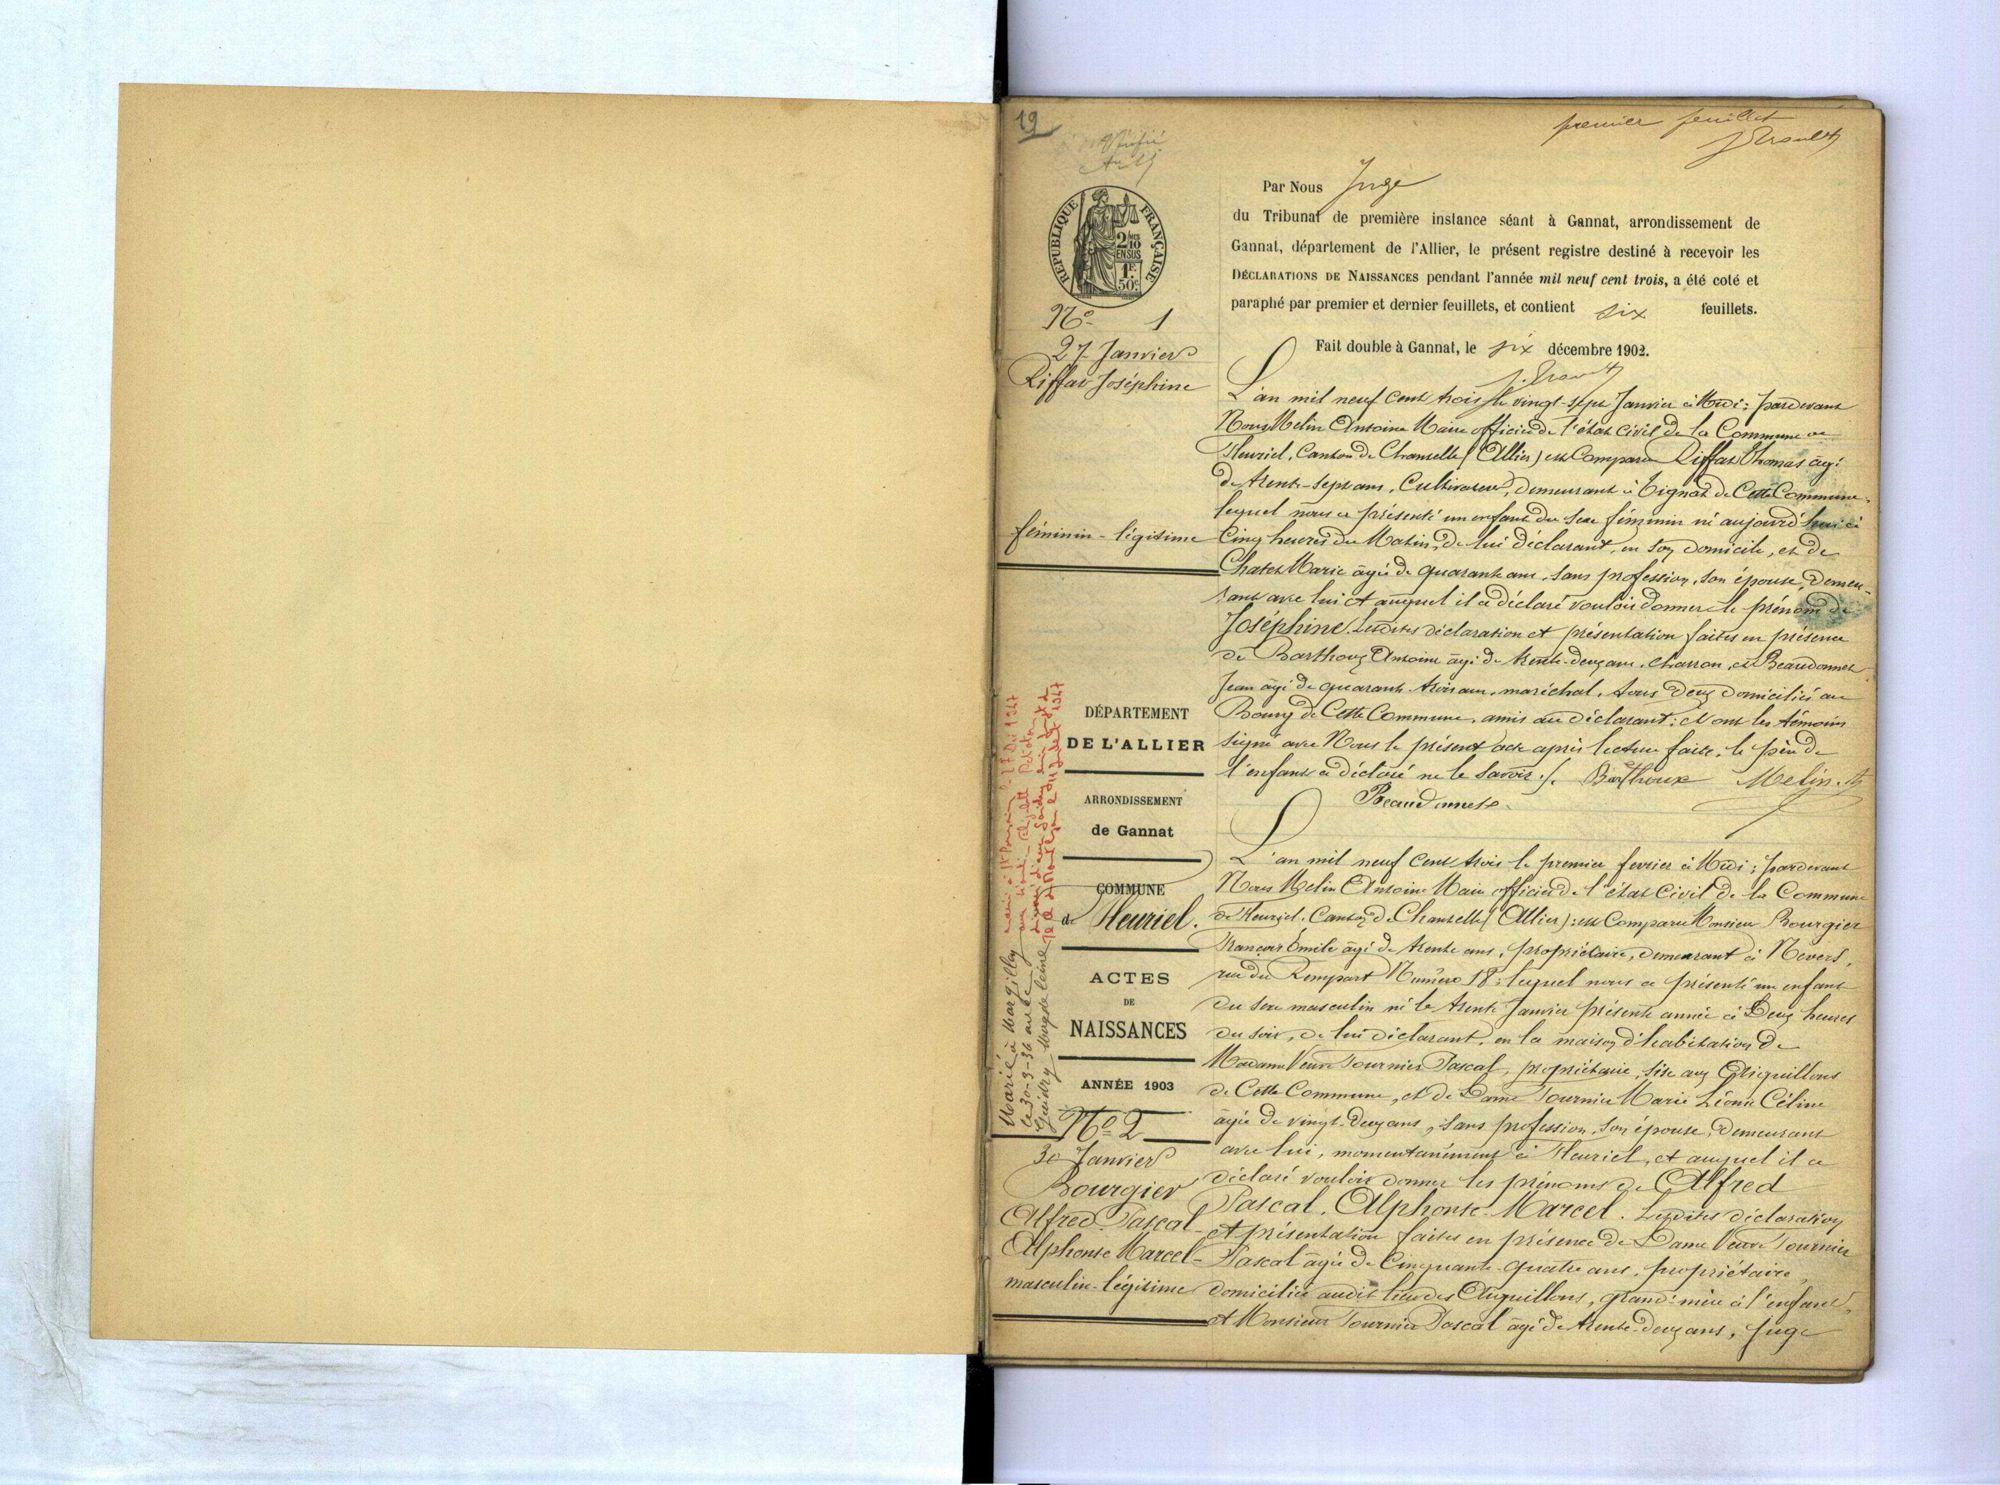 19
premier feuillet
Vérifié
RÉPUBLIQUE FRANÇAISE
2/10
EN SUS
1F.
50c.
Par Nous Juge
du Tribunal de première instance séant à Gannat, arrondissement de
Gannat, département de l'Allier, le présent registre destiné à recevoir les
DÉCLARATIONS DE NAISSANCES pendant l'année mil neuf cent trois, a été coté et
paraphé par premier et dernier feuillets, et contient six feuillets.
Fait double à Gannat, le six décembre 1902.
No 1
27 Janvier
Riffat Joséphine
féminin - légitime
L'an mil neuf cent trois le vingt-sept Janvier à Midi; pardevant
Nous Melin Antoine Maire officier de l'état civil de la Commune de
Fleuriel, Canton de Chantelle (Allier) est Comparu Riffat Thomas âgé
de trente-sept ans, Cultivateur, demeurant à Tignat de Cette Commune,
lequel nous a présenté un enfant du sexe féminin né aujourd'hui à
Cinq heures du Matin, de lui déclarant, en son domicile, et de
Chatet Marie âgée de quarante ans, sans profession, son épouse, demeu-
rant avec lui et auquel il a déclaré vouloir donner le prénom de
Joséphine. Lesdites déclaration et présentation faites en présence
de Barthoux Antoine âgé de trente-deux ans, charron, et Beaudonnet
Jean âgé de quarante-trois ans, maréchal, tous deux domiciliés au
Bourg de Cette Commune, amis au déclarant; et ont les témoins
signé avec Nous le présent acte après lecture faite, le père de
l'enfant a déclaré ne le savoir ./. Barthoux Melin
Beaudonnet.
DÉPARTEMENT
DE L'ALLIER
ARRONDISSEMENT
de Gannat
COMMUNE
de Fleuriel.
ACTES
DE
NAISSANCES
ANNÉE 1903
Marié à Margilley
le 30-9-36 avec
Guidry Magdeleine
No 2
30 Janvier
Bourgier
Alfred. Pascal-
Alphonse Marcel-
masculin-légitime
L'an mil neuf cent trois le premier fevrier à Midi; pardevant
Nous Melin Antoine Maire officier de l'état Civil de la Commune
de Fleuriel, Canton de Chantelle (Allier); est Comparu Monsieur Bourgier
François Émile âgé de trente ans, propriétaire, demeurant à Nevers,
rue du Rempart Numéro 18; lequel nous a présenté un enfant
du sexe masculin né le trente Janvier présente année à Deux heures
du soir, de lui déclarant, en la maison d'habitation de
Madame Veuve Tournier Pascal, propriétaire, sise aux Aiguillons
de Cette Commune, et de Dame Tournier Marie Léonie Céline
âgée de vingt-deux ans, sans profession, son épouse, demeurant
avec lui, momentanément à Fleuriel, et auquel il a
déclaré vouloir donner les prénoms de Alfred
Pascal. Alphonse. Marcel. Lesdites déclaration
et présentation faites en présence de Dame Veuve Tournier
Pascal âgée de Cinquante-quatre ans, propriétaire,
domiciliée audit lieu des Aiguillons, grand'mère à l'enfant,
et Monsieur Tournier Pascal âgé de trente-deux ans, Juge